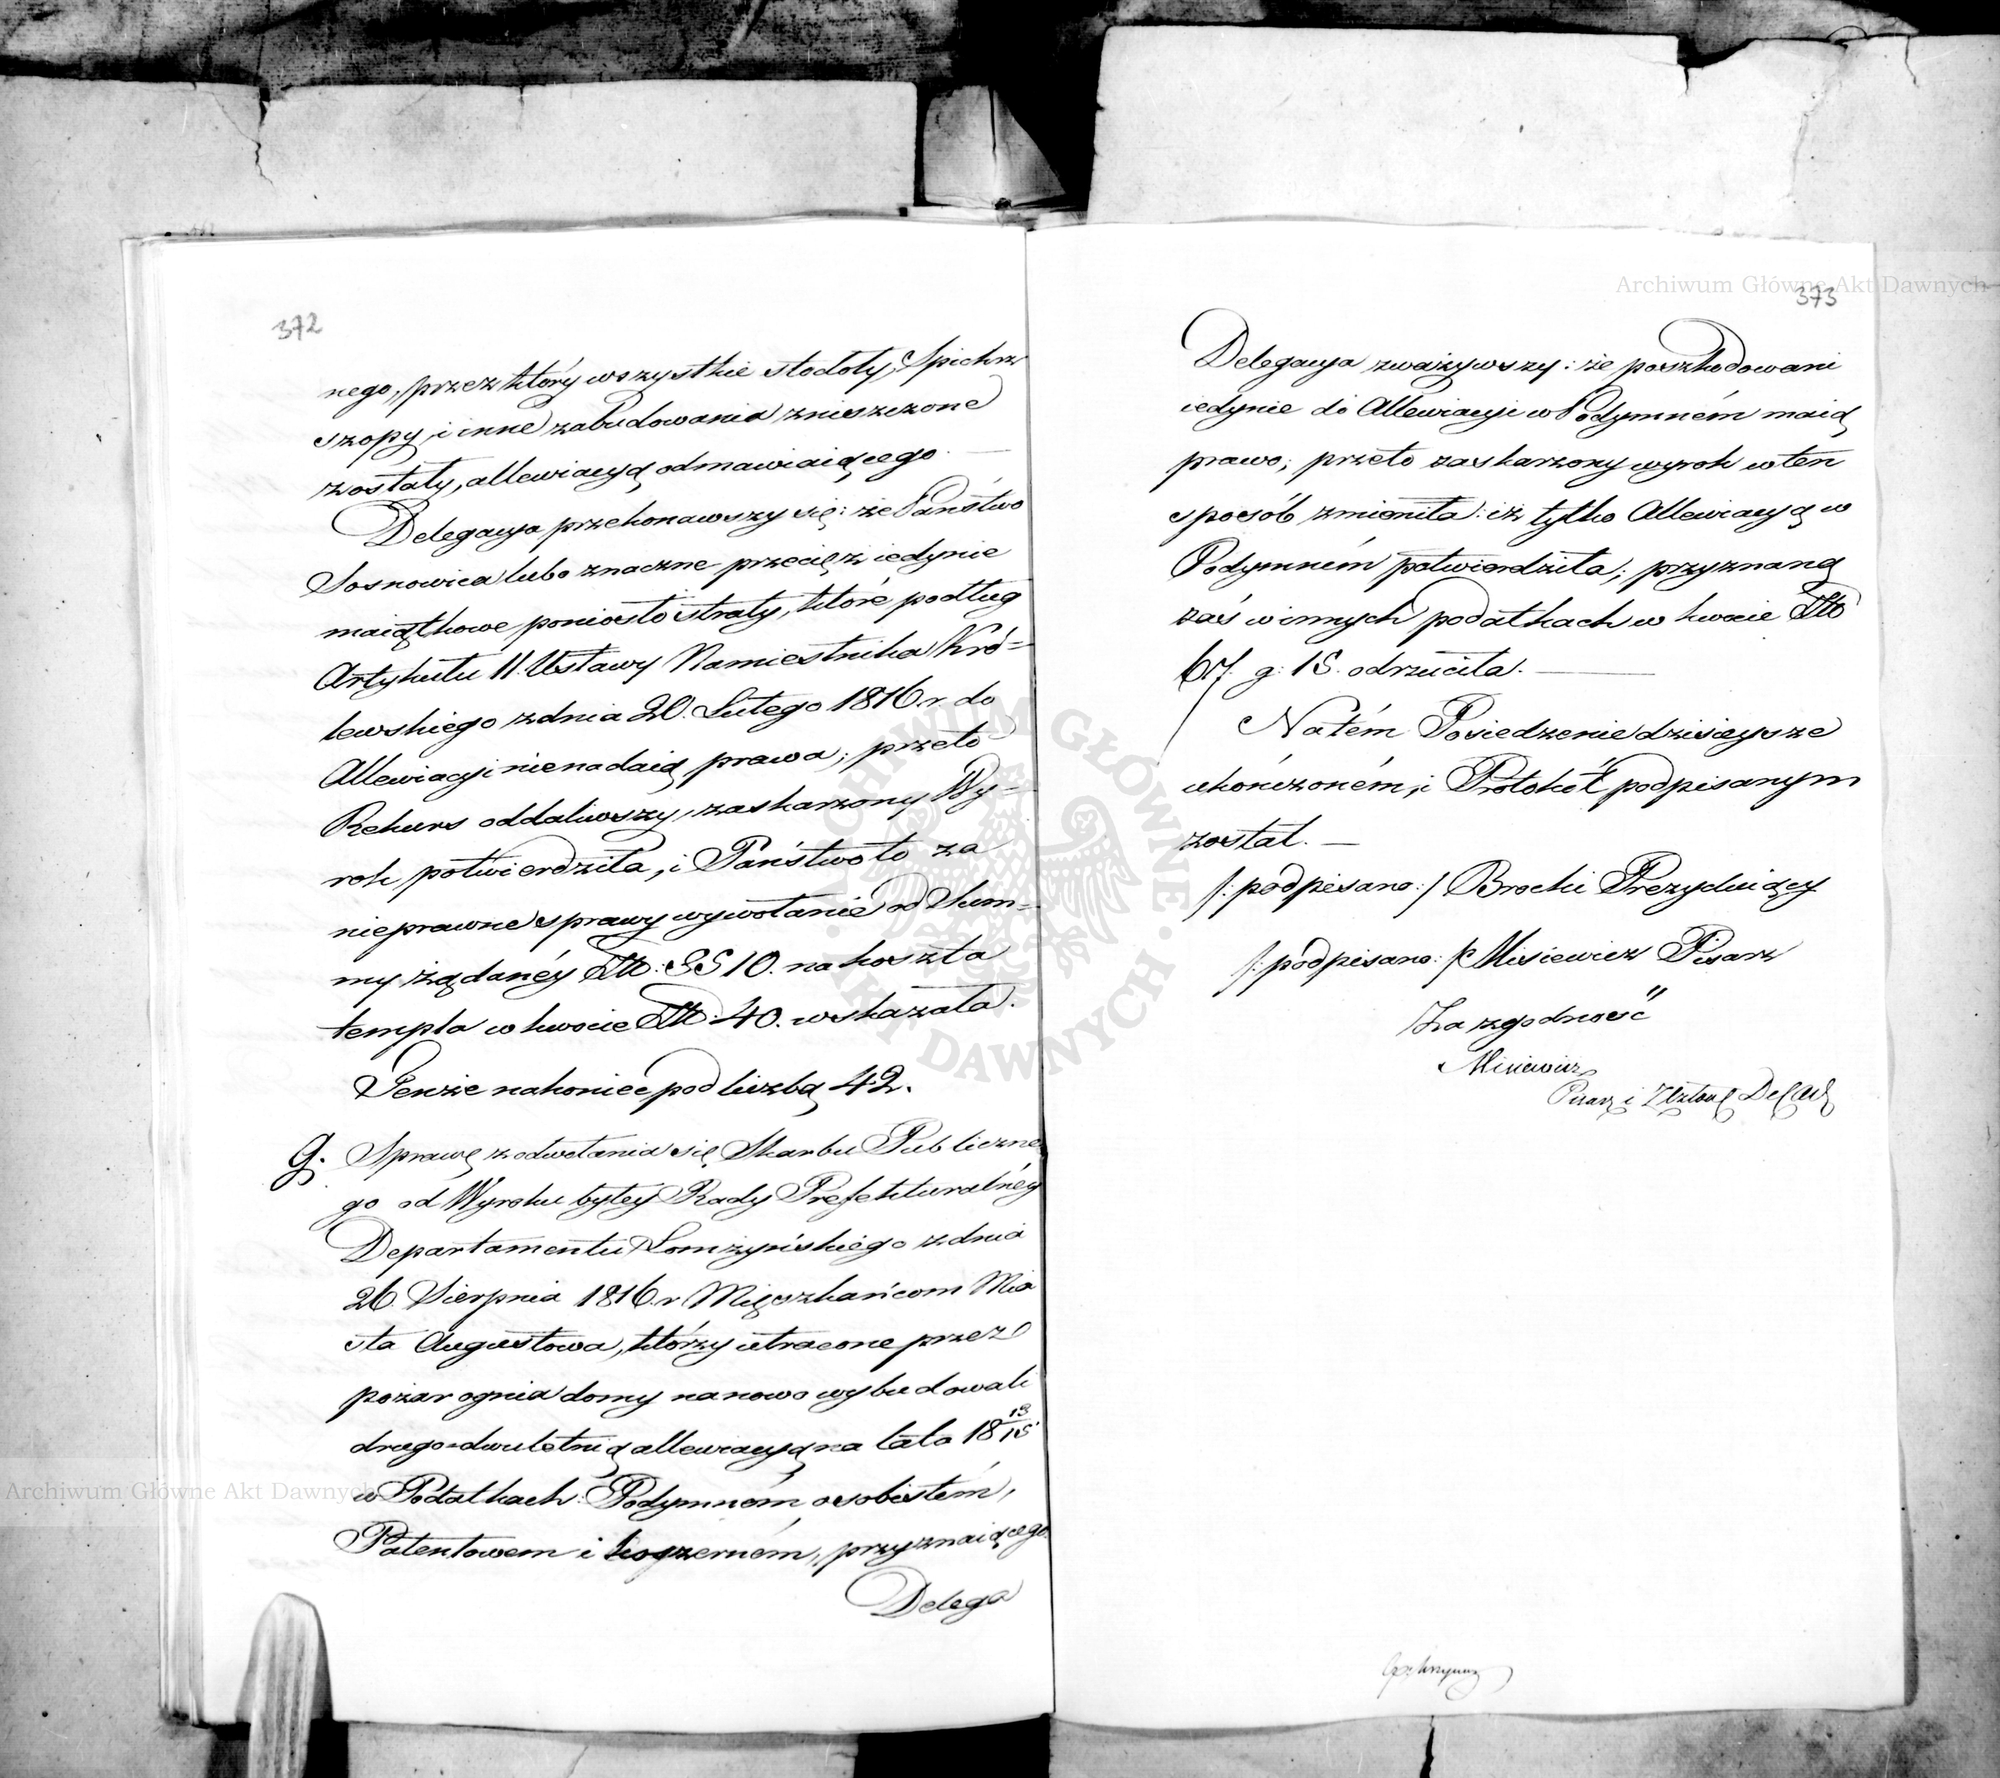 372
nego, przez który wszystkie stodoły, Spichrz
szopy, i inne zabudowania zniszczone
zostały, allewiacyą odmawiaiącego. —
Delegacya przekonawszy się: że Państwo
Sosnowica lubo znaczne przecięż iedynie
maiątkowe poniosło straty, które podług
Artykułu 11. Ustawy Namiestnika Kró=
lewskiego z dnia 20. Lutego 1816 r. do
Allewiacyi nienadaią prawa; przeto
Rekurs oddaliwszy, zaskarżony Wy=
rok potwierdziła, i Państwo to za
nieprawne sprawy wywołanie od Sum=
my żądanéy 5510. na koszta
templa w kwocie 40. wskazała.
Tenże nakoniec pod liczbą 42.
g. Sprawę z odwołania się Skarbu Publiczne
go od Wyroku byłey Rady Prefekturalnéy
Departamentu Łomżyńskiego z dnia
26. Sierpnia 1816 r. Mięszkańcom Mia
sta Augustowa, którzy utracone przez
pożar ognia domy nanowo wybudowali
drugo=dwuletnią allewiacyą na lata 18 13/15
w Podatkach: Podymném, osobistém,
Patentowem i kopzerném, przyznaiącego.
Delega
373
Delegacya zważywszy: że poszkodowani
iedynie do Allewiacyi w Podymném maią
prawo; przeto zaskarżony wyrok w ten
sposób zmieniła: iż tylko Allewiacyą w
Podymném potwierdziła; przyznaną
zaś w innych podatkach w kwocie
67. g: 15. odrzuciła. —
Na tém Posiedzenie dzisieysze
ukończoném, i Protokół podpisanym
został. —
/: podpisano :/ Brocki Prezyduiący
/: podpisano: / Misiewicz Pisarz
Za zgodność
Misiewicz
Pisarz i Del Adm
Archiwum Główne Akt Dawnych
Archiwum Główne Akt Dawnych
ARCHIWUM GŁÓWNE · AKT DAWNYCH ·